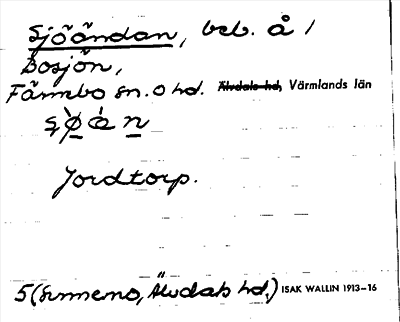 Sjöändan, beb. å /
Bosjön,
Färnebo sn. o hd. Älvdals hd, Värmlands län
Jordtorp.
5 (Sunnemo, Älvdals hd.) ISAK WALLIN 1913–16